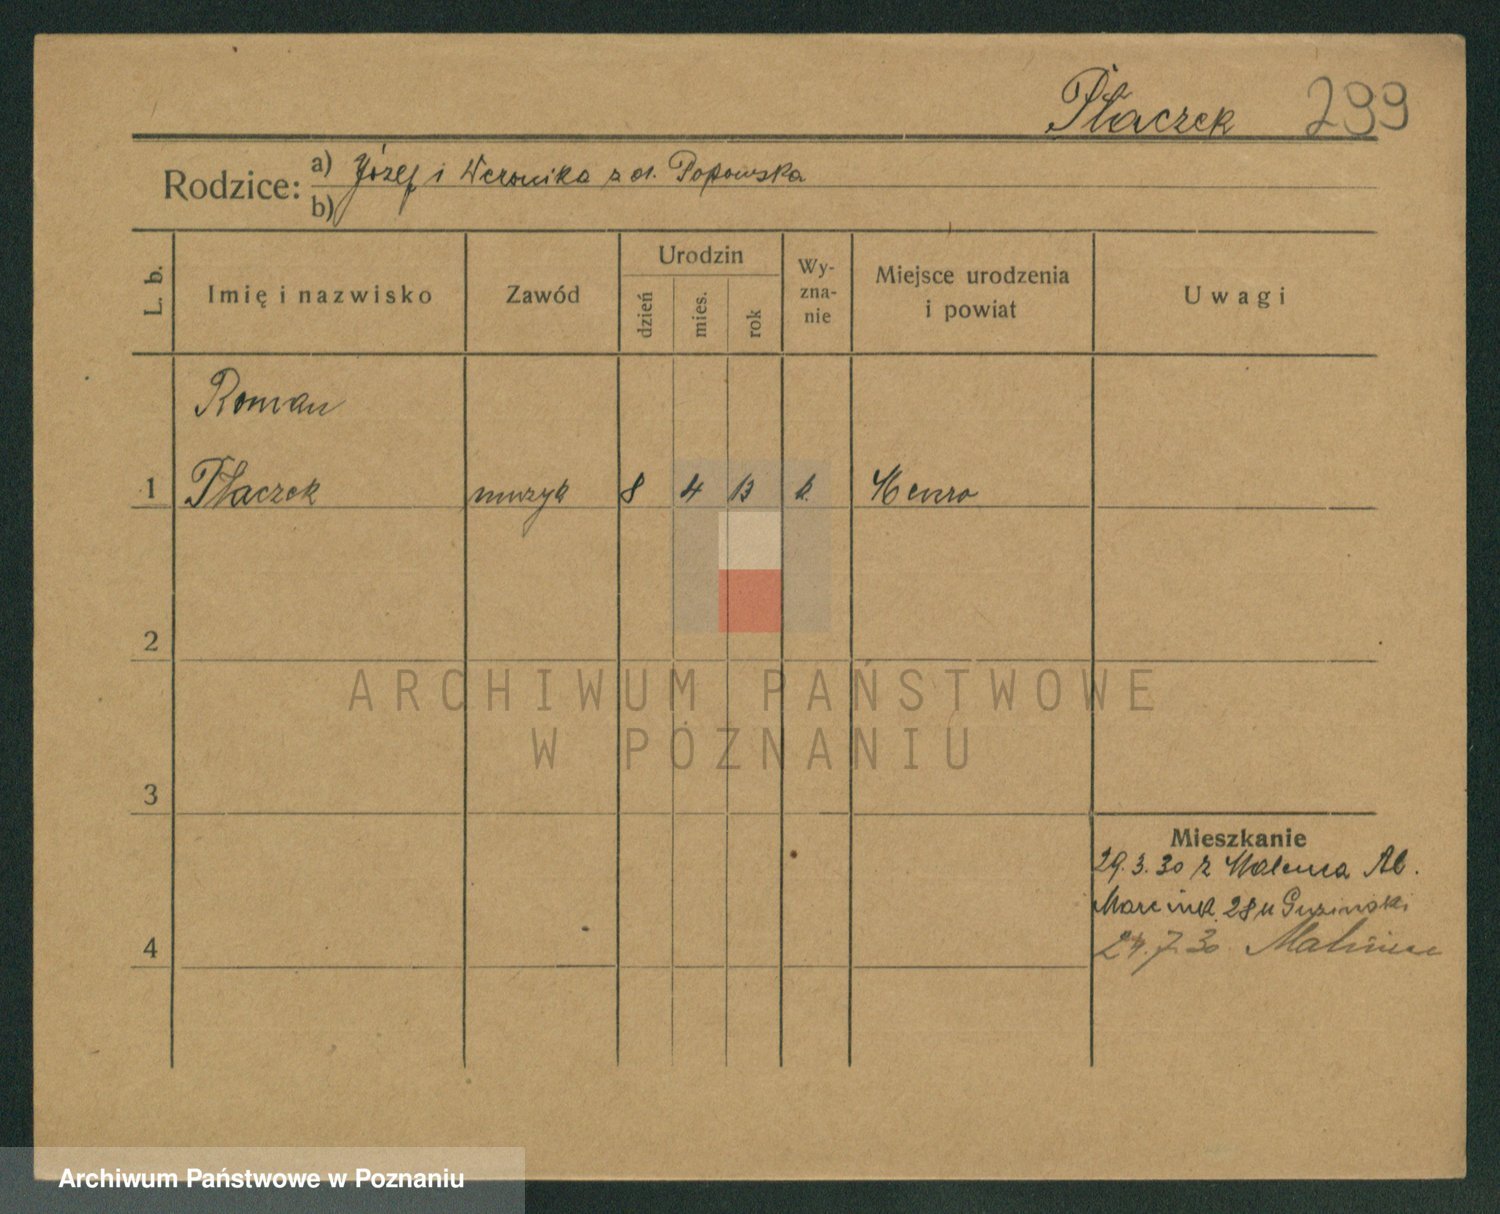 Płaczek 299
Rodzice: a) Józef i Weronika z d. Popowska
b)
L. b.
Imię i nazwisko
Zawód
Urodzin
dzień
mies.
rok
Wy-
zna-
nie
Miejsce urodzenia
i powiat
Uwagi
Roman
1 Płaczek muzyk 8 4 13 k.
2
ARCHIWUM PAŃSTWOWE
W POZNANIU
3
Mieszkanie
29.3.30 z
Marcink. 28 u
4
24.7.30
Archiwum Państwowe w Poznaniu